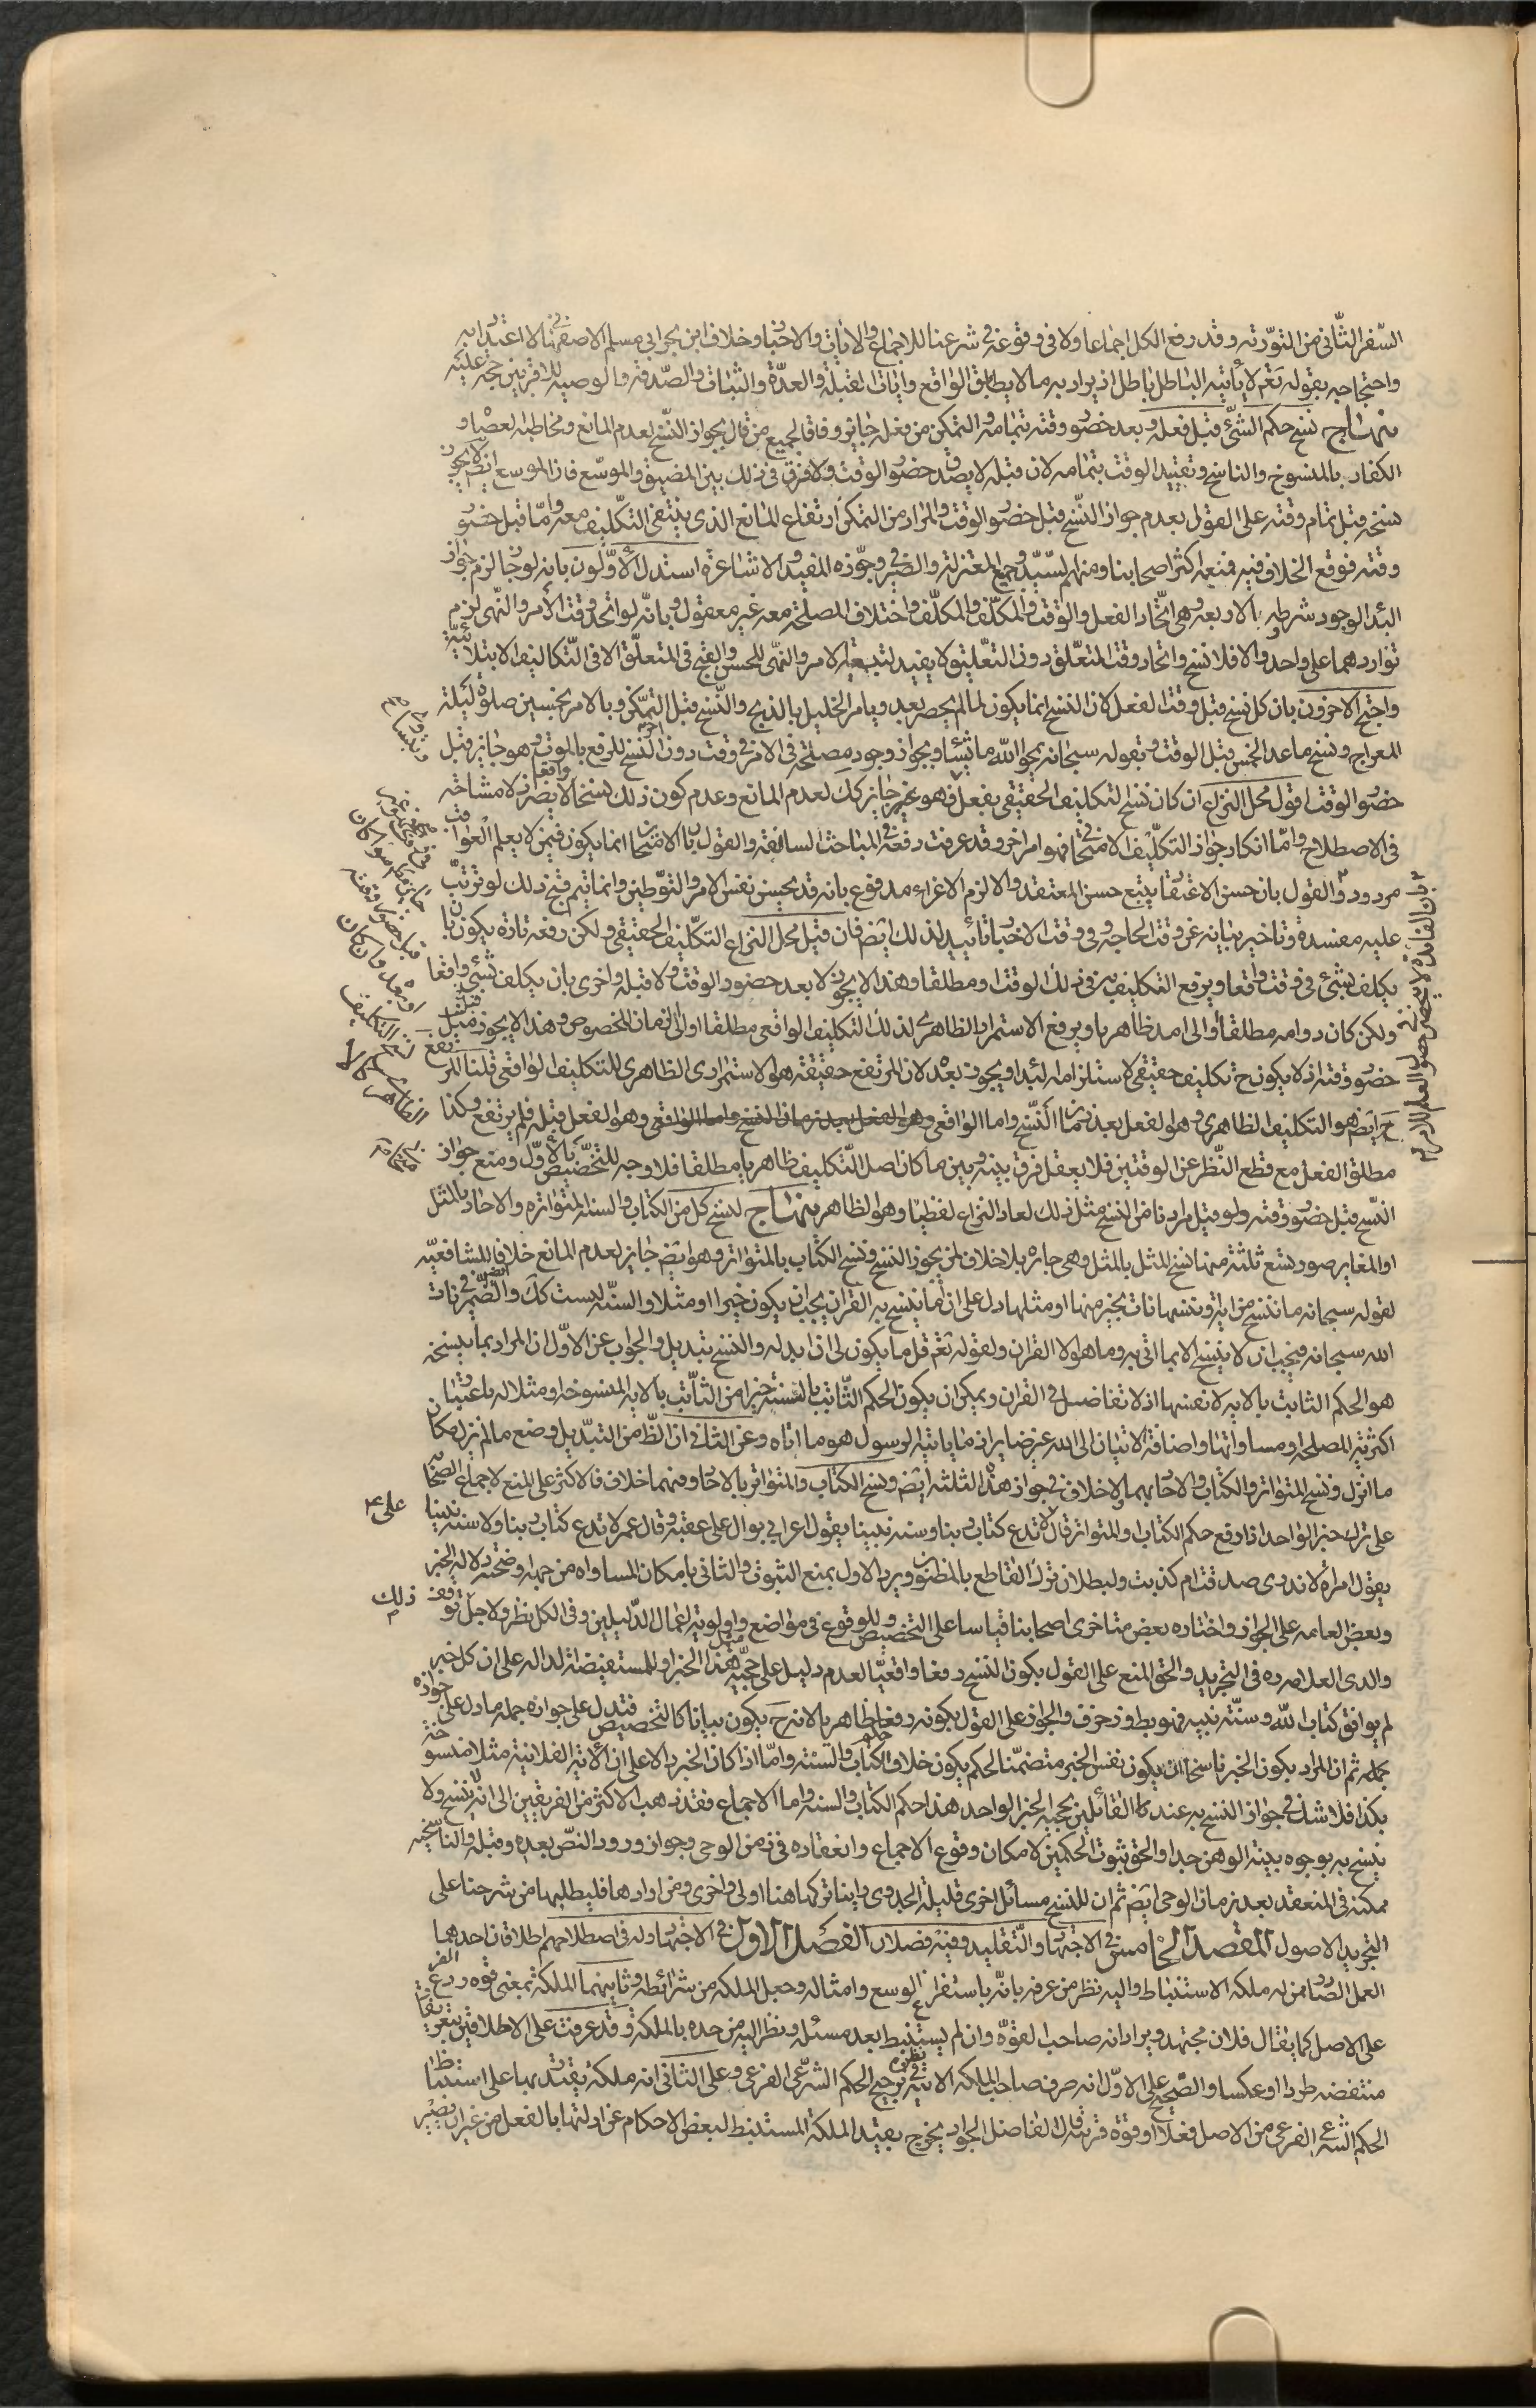 السّفر الثّانى من التورّته و قد رفع الكل اجماعا ولا فى وقوعه فى شرعنا للاجماع و الايات و الاخبار و خلاف ابن بحر ابى مسلم الاصفهانى لا اعتداد به
و احتجاجه بقوله تعم لا يأتيه الباطل باطل اذ يراد به ما لا يطابق الواقع و ايات القبلة و العدّة و الثبات و الصّدقه و الوصيه للاقربين حجة عليه
منهاج نسخ حكم الشئ قبل فعله و بعد حضور وقته بتمامه و التمكن من فعله جايز وفاقا لجميع من قال بجواز النسخ لعدم المانع و مخاطبه لعصاه و
الكفار بالمنسوخ و الناسخ و تقييد الوقت بتمامه لان قبله لا يصدق حضور الوقت و لا فرق فى ذلك بين المضيق و الموسّع فان الموسع ايض لا يجوز
نسخه قبل تمام وقته على القول بعدم جواز النّسخ قبل حضور الوقت و المراد من التمكن ارتفاع المانع الذى ينتفى التكليف معه و امّا قبل حضور
وقته فوقع الخلاف فيه فمنعه اكثر اصحابنا و منهم السّيّد و جميع المعتزلة و الصّيرفى و جوّزه المفيد و الاشاعرة استدل الاوّلون بانه لو جاز لزم جواز
البدا لوجود شرطه بالاربعه و هى اتّحاد الفعل و الوقت و المكلّف و المكلّف و اختلاف المصلحة معه غير معقول و بانّه لو اتحد وقت الامر و النّهى لزم
تواردهما على واحد و الا فلا نسخ و اتحاد وقت المتعلّق دون التعلّيق لا يفيد لتبعيه الامر و النهى للحسن و القبح فى المتعلّق الا فى التّكاليف الابتلائيّة
و احتج الاخرون بان كل نسخ قبل وقت الفعل لان النسخ انما يكون لما لم يحصر بعد و بامر الخليل بالذبح و النّسخ قبل التمكّن و بالامر بخمسين صلوة ليلة
المعراج و نسخ ما عدا الخمس قبل الوقت و بقوله سبحانه يمحو الله ما يشاء و بجواز وجود مصلحة فى الامر فى وقت دون اخر و النسخ للرفع بالموت و هو جايز قبل
حضور الوقت اقول محل النزاع ان كان نسخ التكليف الحقيقى بفعل فهو غير جايز كك لعدم المانع و عدم كون ذلك نسخا لا يضر اذ لا مشاحة
فى الاصطلاح و امّا انكار جواز التكليف الامتحانى فهو امر اخر و قد عرفت دفعه فى المباحث السالفة و القول بان الامتحان انما يكون فيمن لا يعلم العواقب
مردود و القول بان حسن الاعتقاد يتبع حسن المعتقد و الا لزم الاغراء مدفوع بانه قد يحسن نفس الامر و التوطين و انما يتم قبح ذلك لو ترتب
عليه مفسدة و تاخير بيانه عن وقت الحاجة و فى وقت الاخبار تائيد لذلك ايض فان قيل محل النزاع التكليف الحقيقى و لكن رفعه تارة يكون بان
يكلف بشئ فى وقت واقعا و يرفع التكليف به فى ذلك الوقت او مطلقا و هذا لا يجوز لا بعد حضور الوقت و لا قبله و اخرى بان يكلف بشئ واقعا
و لكن كان دوامه مطلقا او الى امد ظاهريا و يرفع الاستمرار الظاهرى لذلك التكليف الواقعى مطلقا او الى زمان المخصوص و هذا لا يجوز قبل
حضور وقته اذ لا يكون ح تكليف حقيقى لاستلزامه البدا و يجوز بعد لان المرتفع حقيقة هو الاستمرارى الظاهرى للتكليف الواقعى قلنا المرتفع
ح ايض هو التكليف الظاهرى و هو الفعل بعد زمان النّسخ و اما الواقعى و هو الفعل قبله فلم يرتفع و كذا
مطلق الفعل مع قطع النّظر عن الوقتين فلا يعقل فرق بينه و بين ما كان اصل التّكليف ظاهريا مطلقا فلا وجه للتخصيص بالاوّل و منع جواز
النّسخ قبل حضور وقته و لو قيل مرادنا من النسخ مثل ذلك لعاد النزاع لفظيا و هو الظاهر منهاج لنسخ كل من الكتاب و السنة المتواتره و الاحاد بالمثل
او المغاير صور تسع ثلثة منها نسخ المثل بالمثل و هى جايزه بلا خلاف لمن يجوز النسخ و نسخ الكتاب بالمتواتر و هو ايض جايز لعدم المانع خلافا للشافعيّه
لقوله سبحانه ما ننسخ من اية او ننسها نات بخير منها او مثلها دل على ان ما ينسخ به القران يجب ان يكون خيرا او مثلا و السنّه ليست كك و الضمير فى نات
الله سبحانه فيجب ان لا ينسخ الا بما اتى به و ما هو الا القران و لقوله تعم قل ما يكون لى ان ابدله و النسخ تبديل و الجواب عن الاوّل ان المراد بما ينسخه
هو الحكم الثابت بالايه لا نفسها اذ لا تفاضل فى القران و يمكن ان يكون الحكم الثّابت بالسنته خيرا من الثابت بالايه المنسوخه او مثلا له باعتبار
اكثريّه المصلحه او مساواتها و اضافة الاتيان الى الله عز ضاير اذ ما ياتى به الرسول هو ما اتاه و عن الثانى ان الظ من التبديل وضع ما لم ينزل مكان
ما انزل و نسخ المتواتر و الكتاب و الاحاد بهما و لا خلاف فى جواز هذه الثلثه ايض و نسخ الكتاب و المتواتر بالاحاد و فيهما خلاف فالاكثر على المنع لاجماع الصحابة
على ترك خبر الواحد اذا رفع حكم الكتاب او المتواتر قال لا تدع كتاب ربنا و سنه نبينا بقول اعرابى بوال على عقبيه و قال عمر لا تدع كتاب ربنا و لا سنه نبينا
بقول امراة لا ندرى صدقت ام كذبت و لبطلان ترك القاطع بالمظنون و يرد الاول بمنع الثبوت و الثانى بامكان المساواه من جهة وضوح دلاله الخبر
و بعض العامه على الجواز و اختاره بعض متاخرى اصحابنا قياسا على التخصيص و للوقوع فى مواضع و اولوية اعمال الدّليلين و فى الكل نظر و لاجل ذلك توقف
والدى العلامه ره فى التجريد و الحق المنع على القول بكون النسخ دفعا واقعيا لعدم دليل على حجيّه مثل هذا الخبر و للمستفيضة الداله على ان كل خبر
لم يوافق كتاب الله و سنّة نبيه فهو بط و زخرف و الجواز على القول بكونه دفعا ظاهريا لانه ح يكون بيانا كالتخصيص فتدل على جوازه جمله ما دل على جوازه
جمله ثم ان المراد بكون الخبر ناسخا ان يكون نفس الخبر متضمّنا لحكم يكون خلاف حكم الكتاب و السنته و امّا اذا كان الخبر دالا على ان الاية الفلانية مثلا منسوخة
بكذا فلا شك فى جواز النسخ به عند كل القائلين بحجيه الخبر الواحد هذا حكم الكتاب و السنه و اما الاجماع فقد ذهب الاكثر من الفريقين الى انه لا ينسخ و لا
ينسخ به بوجوه بيّنة الوهن جدا و الحق ثبوت الحكمين لامكان وقوع الاجماع و انعقاده فى زمن الوحى و جواز ورود النصّ بعده و قبله و الناسخيّه
ممكنه فى المنعقد بعد زمان الوحى ايض ثم ان للنسخ مسائل اخرى قليلة الجدوى راينا تركها هنا اولى و احرى و من ارادها فليطلبها من شرحنا على
التجريد الاصول المقصد الخامس فى الاجتهاد و التّقليد و فيه فصلان الفصل الاول فى الاجتهاد و له فى اصطلاحهم اطلاقان احدهما
العمل الصّادر ممن له ملكه الاستنباط و اليه نظر من عرفه بانّه باستفراغ الوسع و امثاله و جعل الملكه من شرائطه و ثانيهما الملكة بمعنى قوه رد الفرع
على الاصل كما يقال فلان مجتهد و يراد انه صاحب القوّه و ان لم يستنبط بعد مسئله و نظر اليه من حده بالملكة و قد عرفت على الاطلاقين بتعريفات
منتقضه طردا او عكسا و الصّحيح على الاوّل انه صرف صاحب الملكه الاتيه نظره فى ترجيح الحكم الشّرعى الفرعى و على الثانى انه ملكة يقتدر بها على استنباط
الحكم الشّرعى الفرعى من الاصل فعلا او قوة قريبة قال الفاضل الجواد يخرج بقيد الملكة المستنبط لبعض الاحكام عن ادلتها بالفعل من غير ان يصير